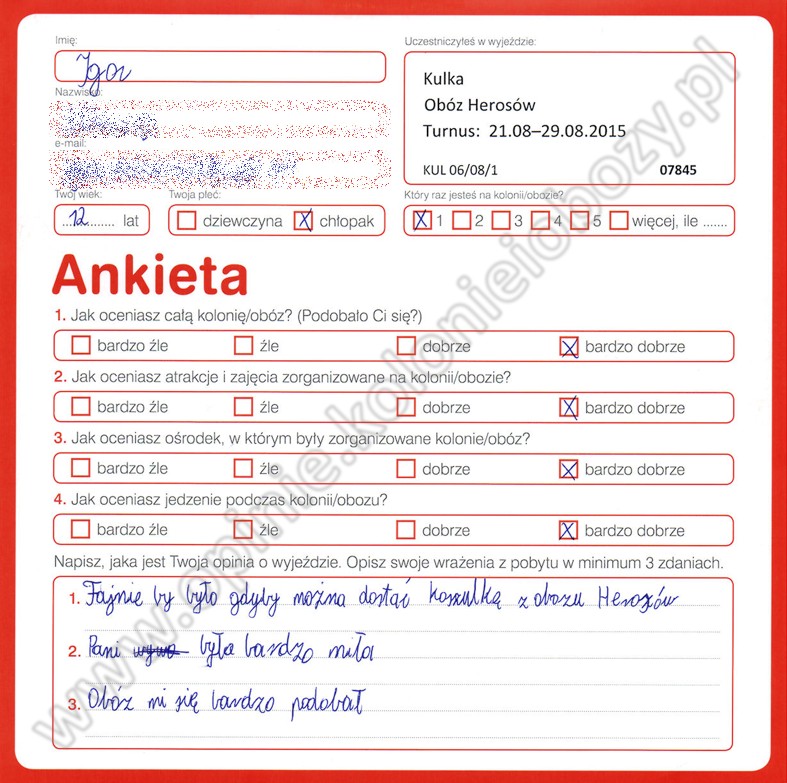 Imię:
Igor
Uczestniczyłeś w wyjeździe:
Kulka
Obóz Herosów
Turnus: 21.08–29.08.2015
KUL 06/08/1 07845
Nazwisko:
e-mail:
Twój wiek:
..12........ lat
Twoja płeć:
dziewczyna X chłopak
Który raz jesteś na kolonii/obozie?
X 1 2 3 4 5 więcej, ile .......
Ankieta
1. Jak oceniasz całą kolonię/obóz? (Podobało Ci się?)
bardzo źle źle dobrze X bardzo dobrze
2. Jak oceniasz atrakcje i zajęcia zorganizowane na kolonii/obozie?
bardzo źle źle dobrze X bardzo dobrze
3. Jak oceniasz ośrodek, w którym były zorganizowane kolonie/obóz?
bardzo źle źle dobrze X bardzo dobrze
4. Jak oceniasz jedzenie podczas kolonii/obozu?
bardzo źle źle dobrze X bardzo dobrze
Napisz, jaka jest Twoja opinia o wyjeździe. Opisz swoje wrażenia z pobytu w minimum 3 zdaniach.
1. Fajnie by było gdyby można dostać koszulką z obozu Herosów
2. Pani była bardzo miła
3. Obóz mi się bardzo podobał
www.opinie.kolonieiobozy.pl